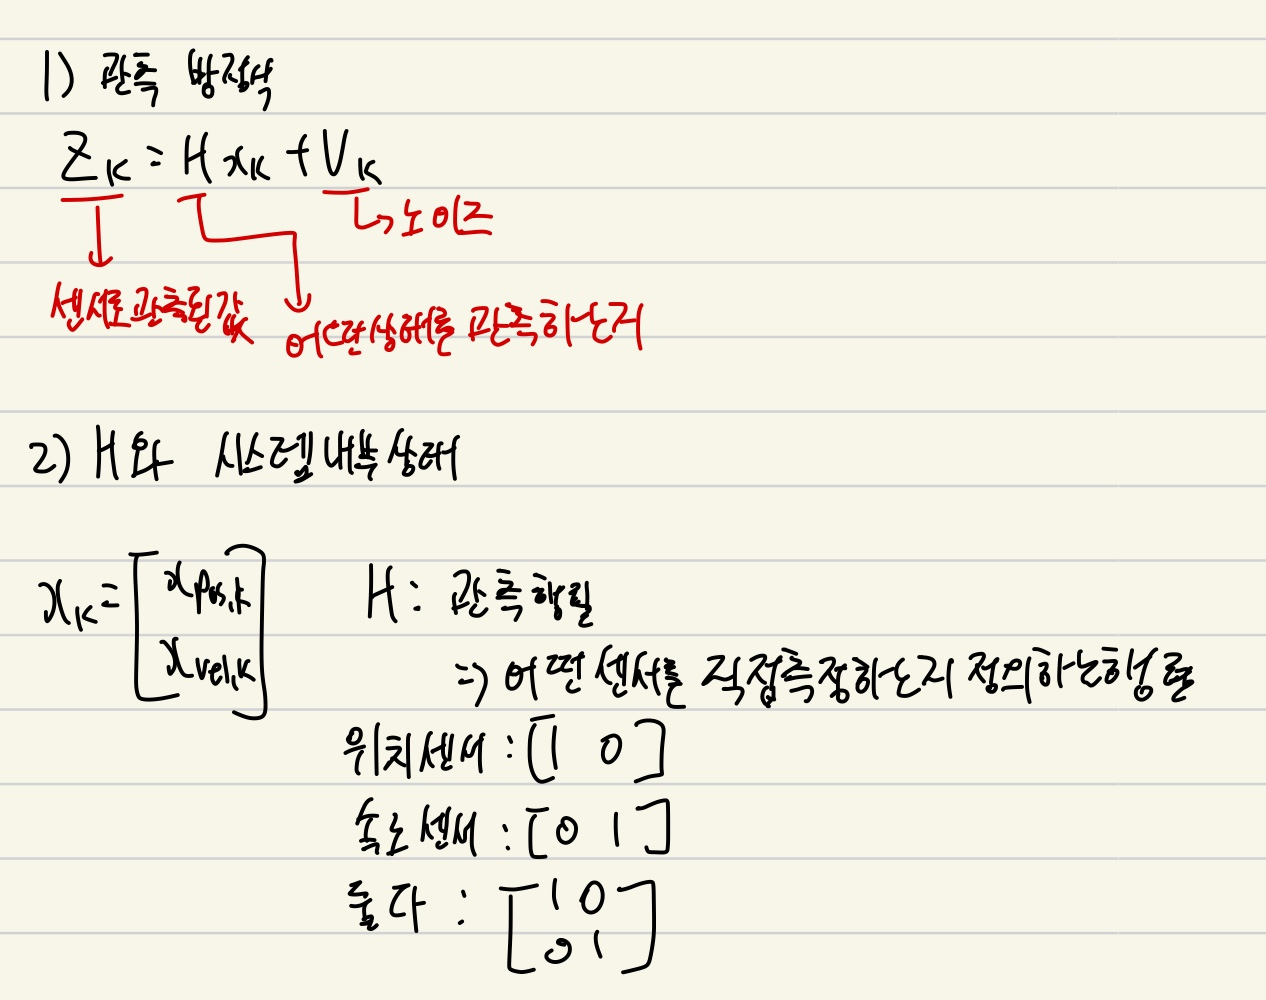 1) 관측 방정식
Z_K = H x_K + V_K
↳ 노이즈
센서로 관측된 값
어떤 상태를 관측하는지
2) H와 시스템 내부 상태
x_K = [x_pos,k
x_vel,k]
H : 관측행렬
=> 어떤 센서를 직접측정하는지 정의하는행렬
위치센서 : [1 0]
속도센서 : [0 1]
둘다 : [1 0
0 1]